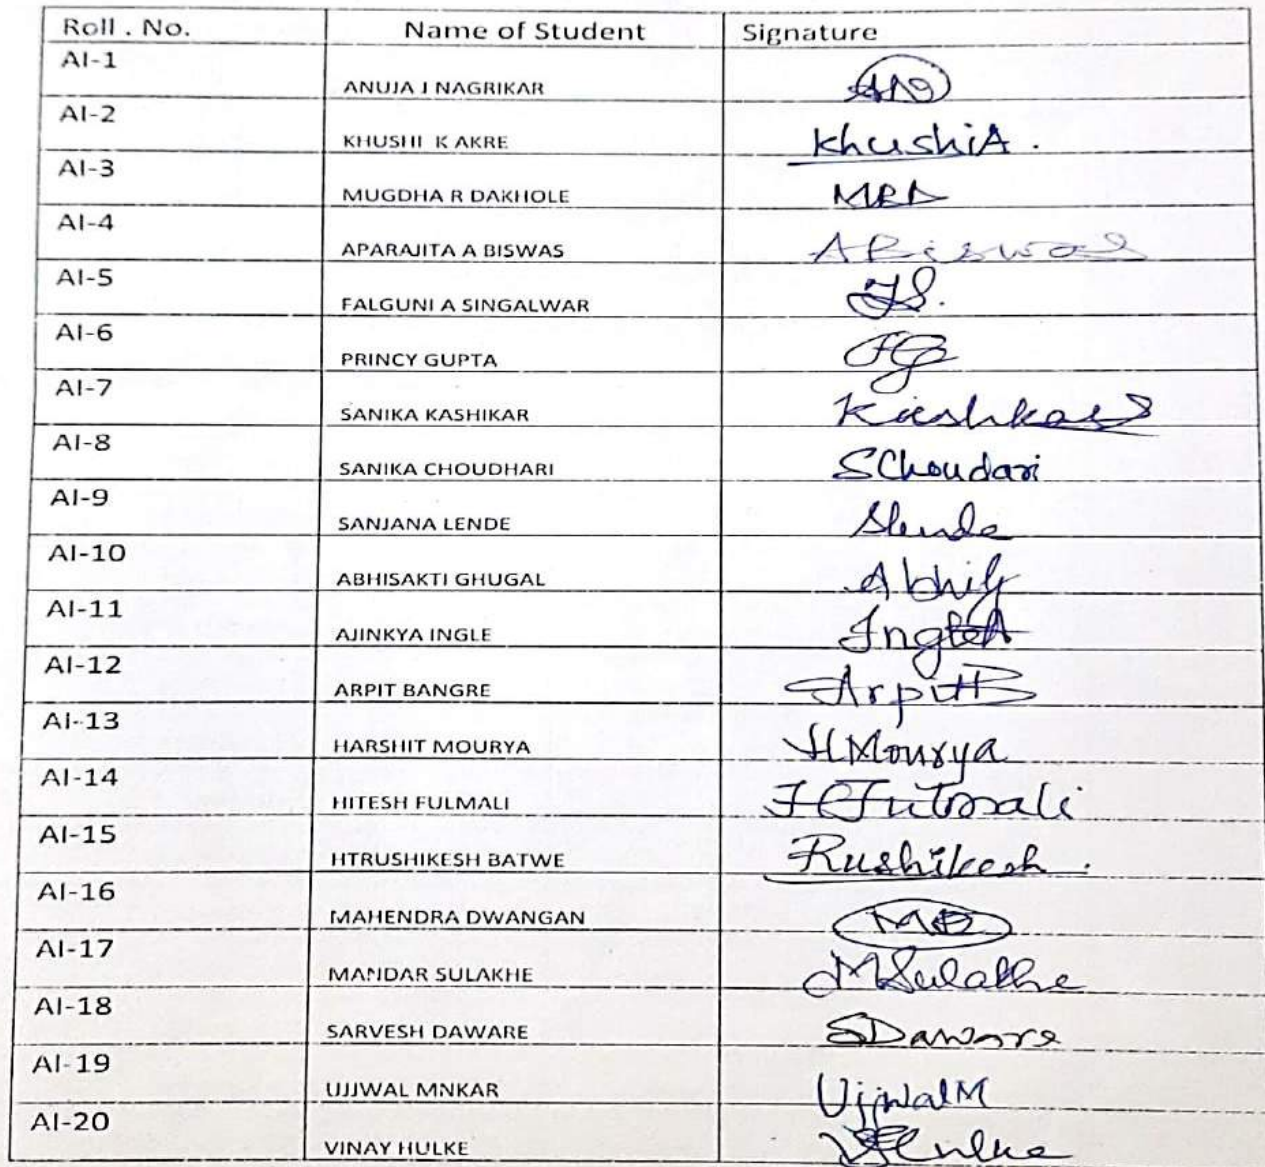 Roll . No. Name of Student Signature
AI-1
ANUJA J NAGRIKAR AN
AI-2
KHUSHI K AKRE KhushiA .
AI-3
MUGDHA R DAKHOLE MRD
AI-4
APARAJITA A BISWAS ABiswas
AI-5
FALGUNI A SINGALWAR FS.
AI-6
PRINCY GUPTA PG
AI-7
SANIKA KASHIKAR Kashikar
AI-8
SANIKA CHOUDHARI SChoudari
AI-9
SANJANA LENDE SLende
AI-10
ABHISAKTI GHUGAL AbhiG
AI-11
AJINKYA INGLE IngleA
AI-12
ARPIT BANGRE ArpitB
AI-13
HARSHIT MOURYA HMourya
AI-14
HITESH FULMALI
AI-15
HTRUSHIKESH BATWE Rushikesh .
AI-16
MAHENDRA DWANGAN
AI-17
MANDAR SULAKHE MSulakhe
AI-18
SARVESH DAWARE SDaware
AI-19
UJJWAL MNKAR UjjwalM
AI-20
VINAY HULKE VHulke